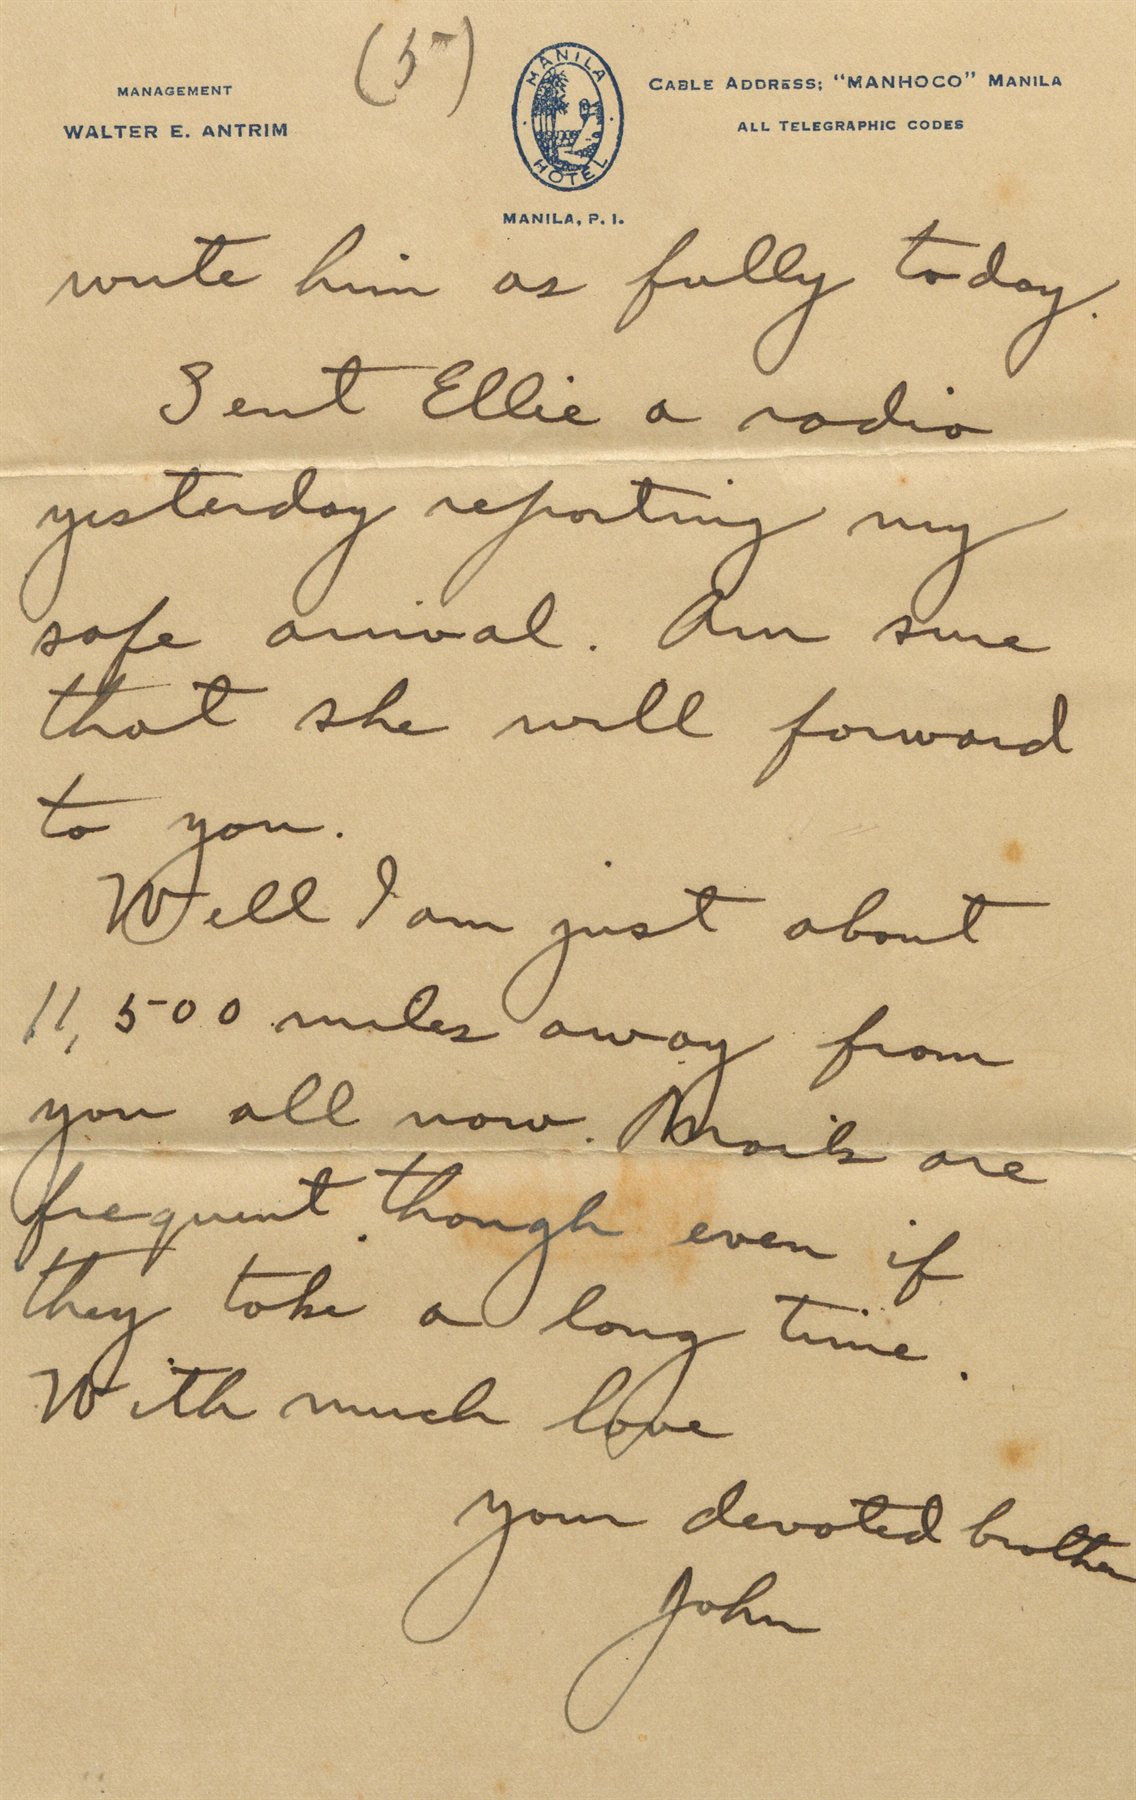 (5)
MANAGEMENT
WALTER E. ANTRIM
MANILA
HOTEL
MANILA, P. I.
CABLE ADDRESS; "MANHOCO" MANILA
ALL TELEGRAPHIC CODES
write him as fully today.
Sent Ellie a radio
yesterday reporting my
safe arrival. Am sure
that she will forward
to you.
Well I am just about
11,500 miles away from
you all now. Mails are
frequent though even if
they take a long time.
With much love
your devoted brother
John